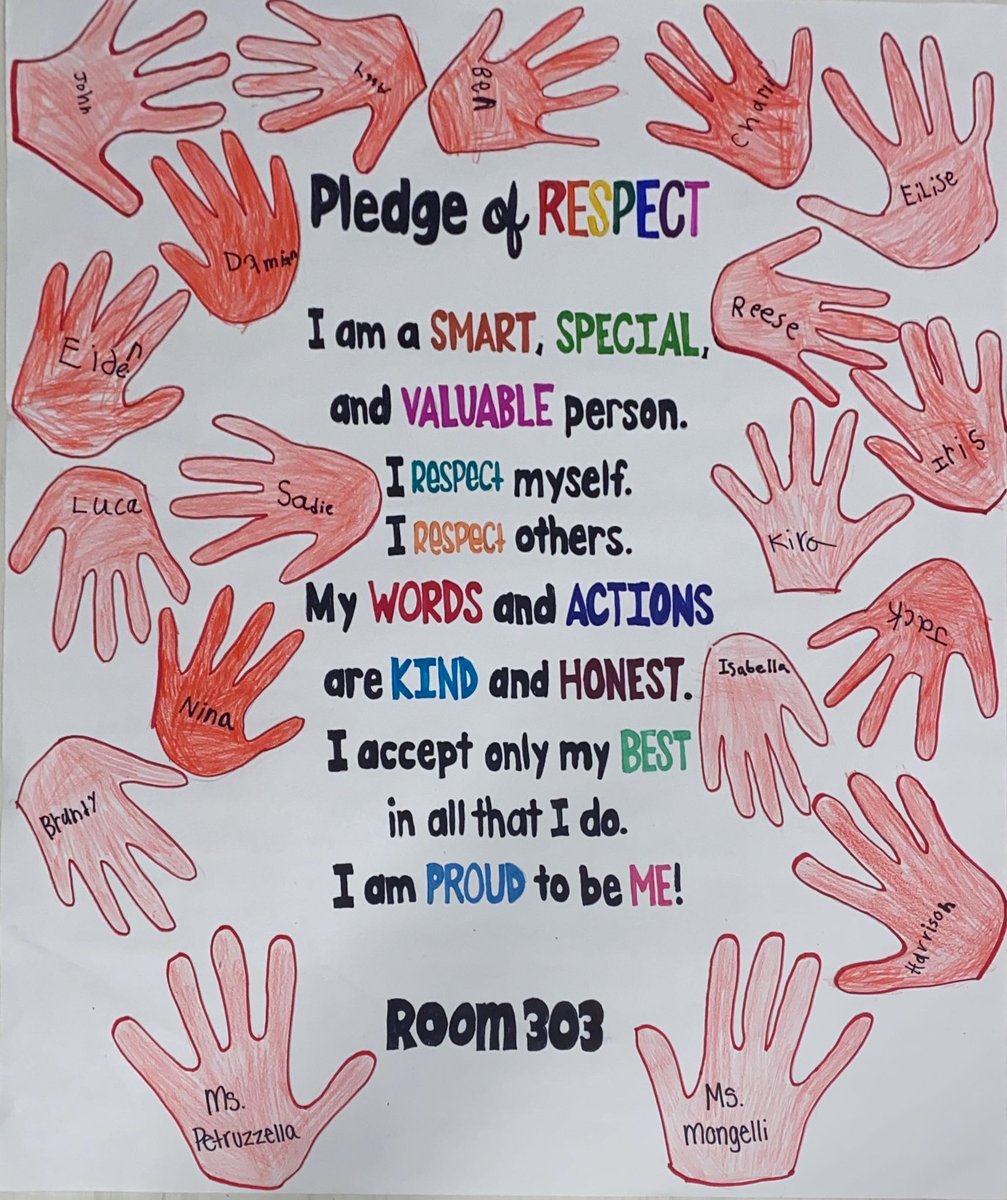 John
Ben
Eilise
Damian
Pledge of RESPECT
Eiden
Reese
I am a SMART, SPECIAL,
and VALUABLE person.
Iris
Luca
Sadie
I RESPECT myself.
I RESPECT others.
Kira
My WORDS and ACTIONS
Jack
Isabella
are KIND and HONEST.
Nina
I accept only my BEST
Brandy
in all that I do.
I am PROUD to be ME!
Harrison
ROOM 303
Ms.
Petruzzella
Ms.
Mongelli